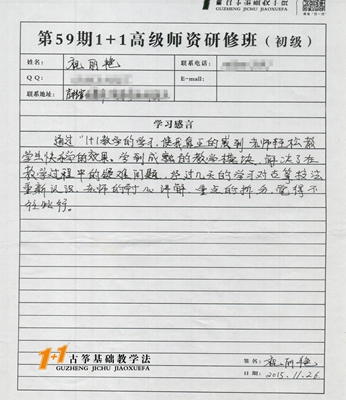 1+1
GUZHENG JICHU JIAOXUEFA
第59期1+1高级师资研修班（初级）
姓名： 祝丽艳 联系电话：
QQ： E-mail：
联系地址：
学习感言
通过"1+1教学的学习，使我真正的感到 老师轻松教
学生快乐学的效果。学到成熟的教学模法，解决了在
教学过程中的疑难问题，经过几天的学习对古筝技法
重新认识，老师的耐心讲解，重点的拆分，觉得不
虚此行。
1+1 古筝基础教学法
GUZHENG JICHU JIAOXUEFA
签名： 祝丽艳
日期： 2015.11.26